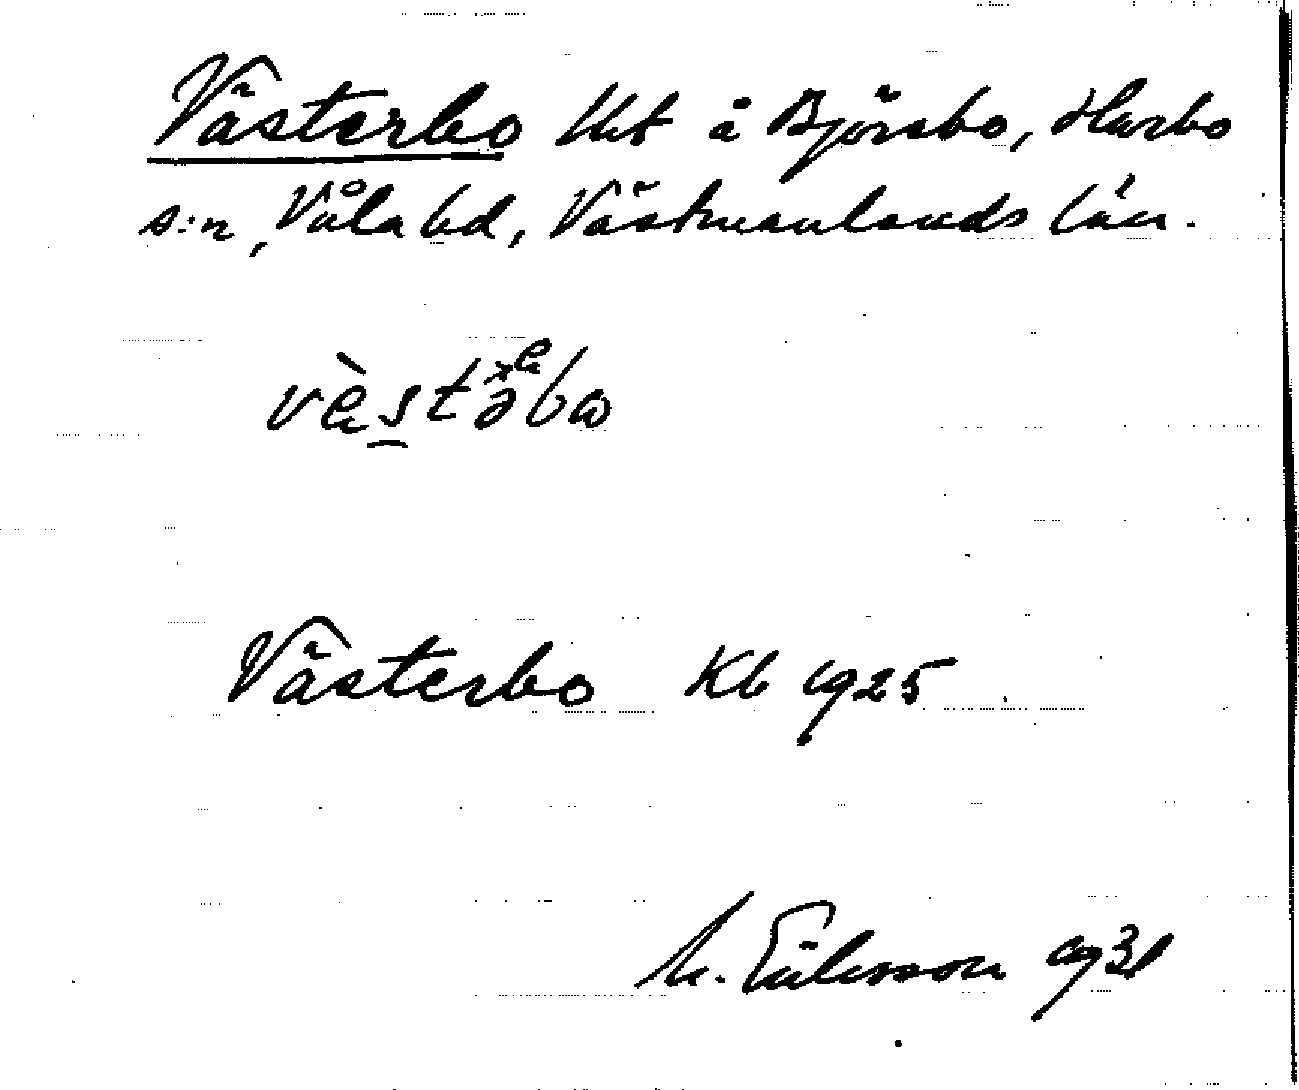 Västerbo lht å Björsbo, Harbo
s:n, Våla hd, Västmanlands län.
vὲstəbω
Västerbo Kb 1925
M. Eriksson 1931